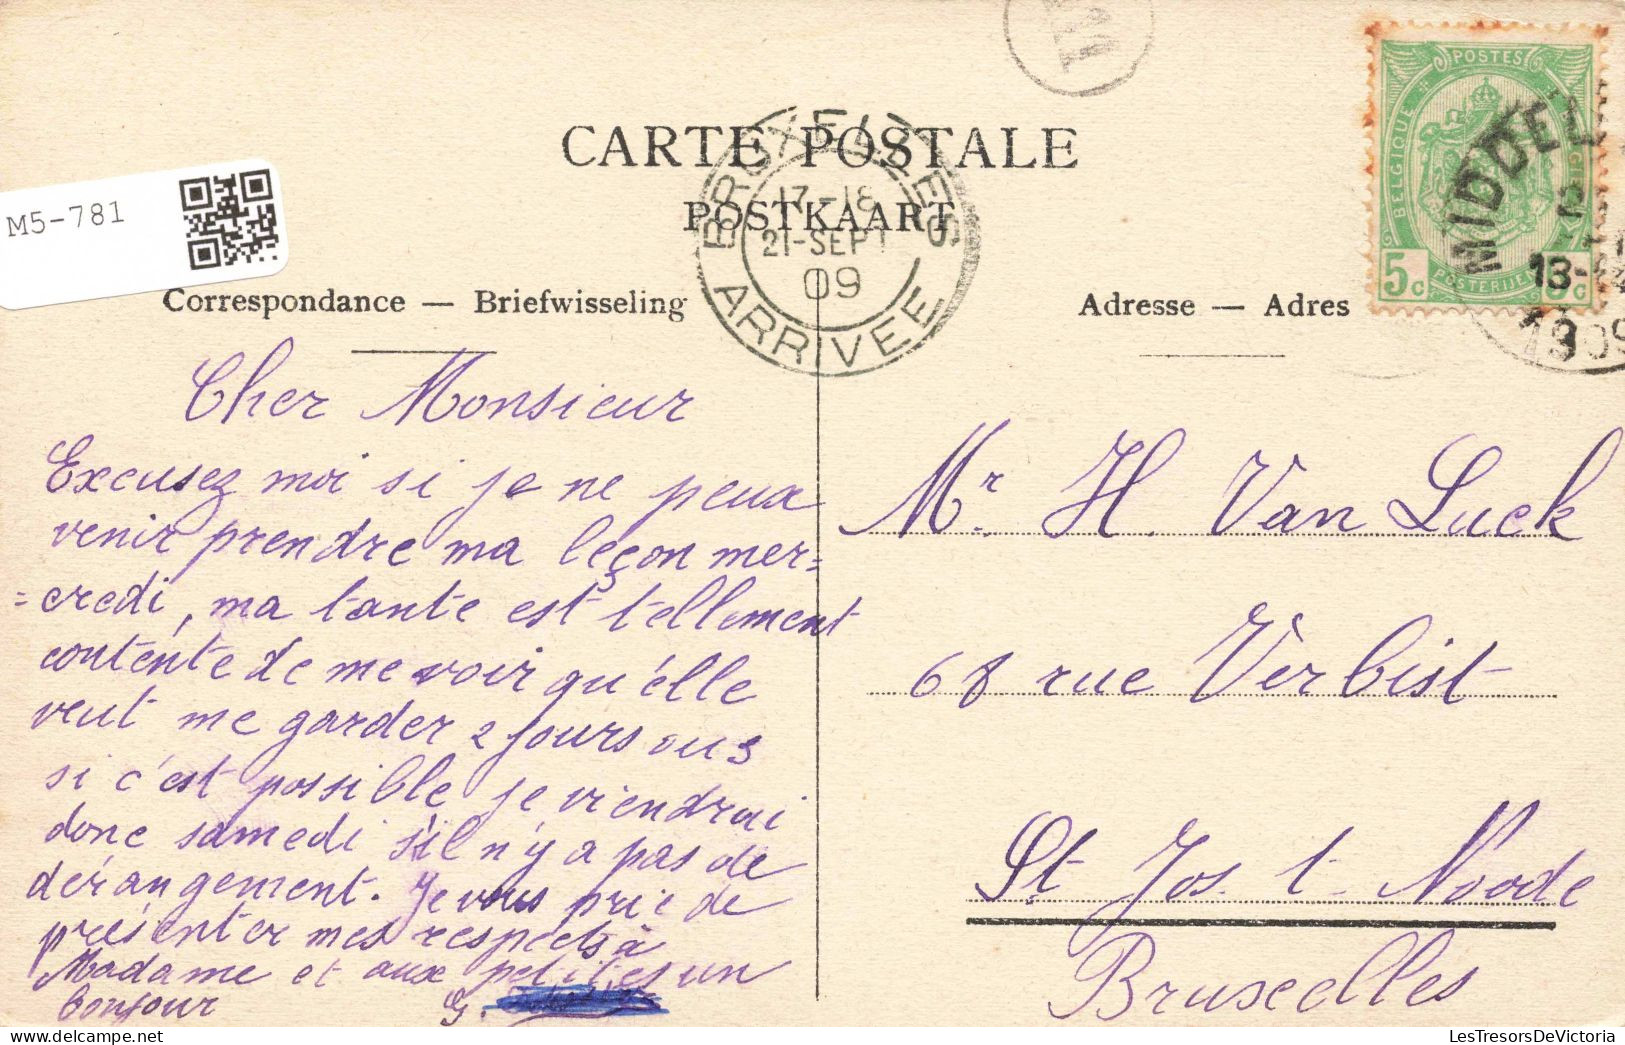 CARTE POSTALE
POSTKAART
BRUXELLES
17-18
21-SEPT
09
ARRIVEE
POSTES
BELGIQUE
MIDDEL
5c
POSTERIJEN
1909
M5-781
Correspondance — Briefwisseling
Adresse — Adres
Cher Monsieur
Excusez moi si je ne peux
venir prendre ma leçon mer=
=credi, ma tante est tellement
contente de me voir qu'elle
veut me garder 2 jours ou 3
si c'est possible je viendrai
donc samedi s'il n'y a pas de
dérangement. Je vous prie de
présenter mes respects à
Madame et aux petites un
bonjour G.
Mr. H. Van Luck
68 rue Verbist
St Jos. t. Noode
Bruxelles
LesTresorsDeVictoria.com